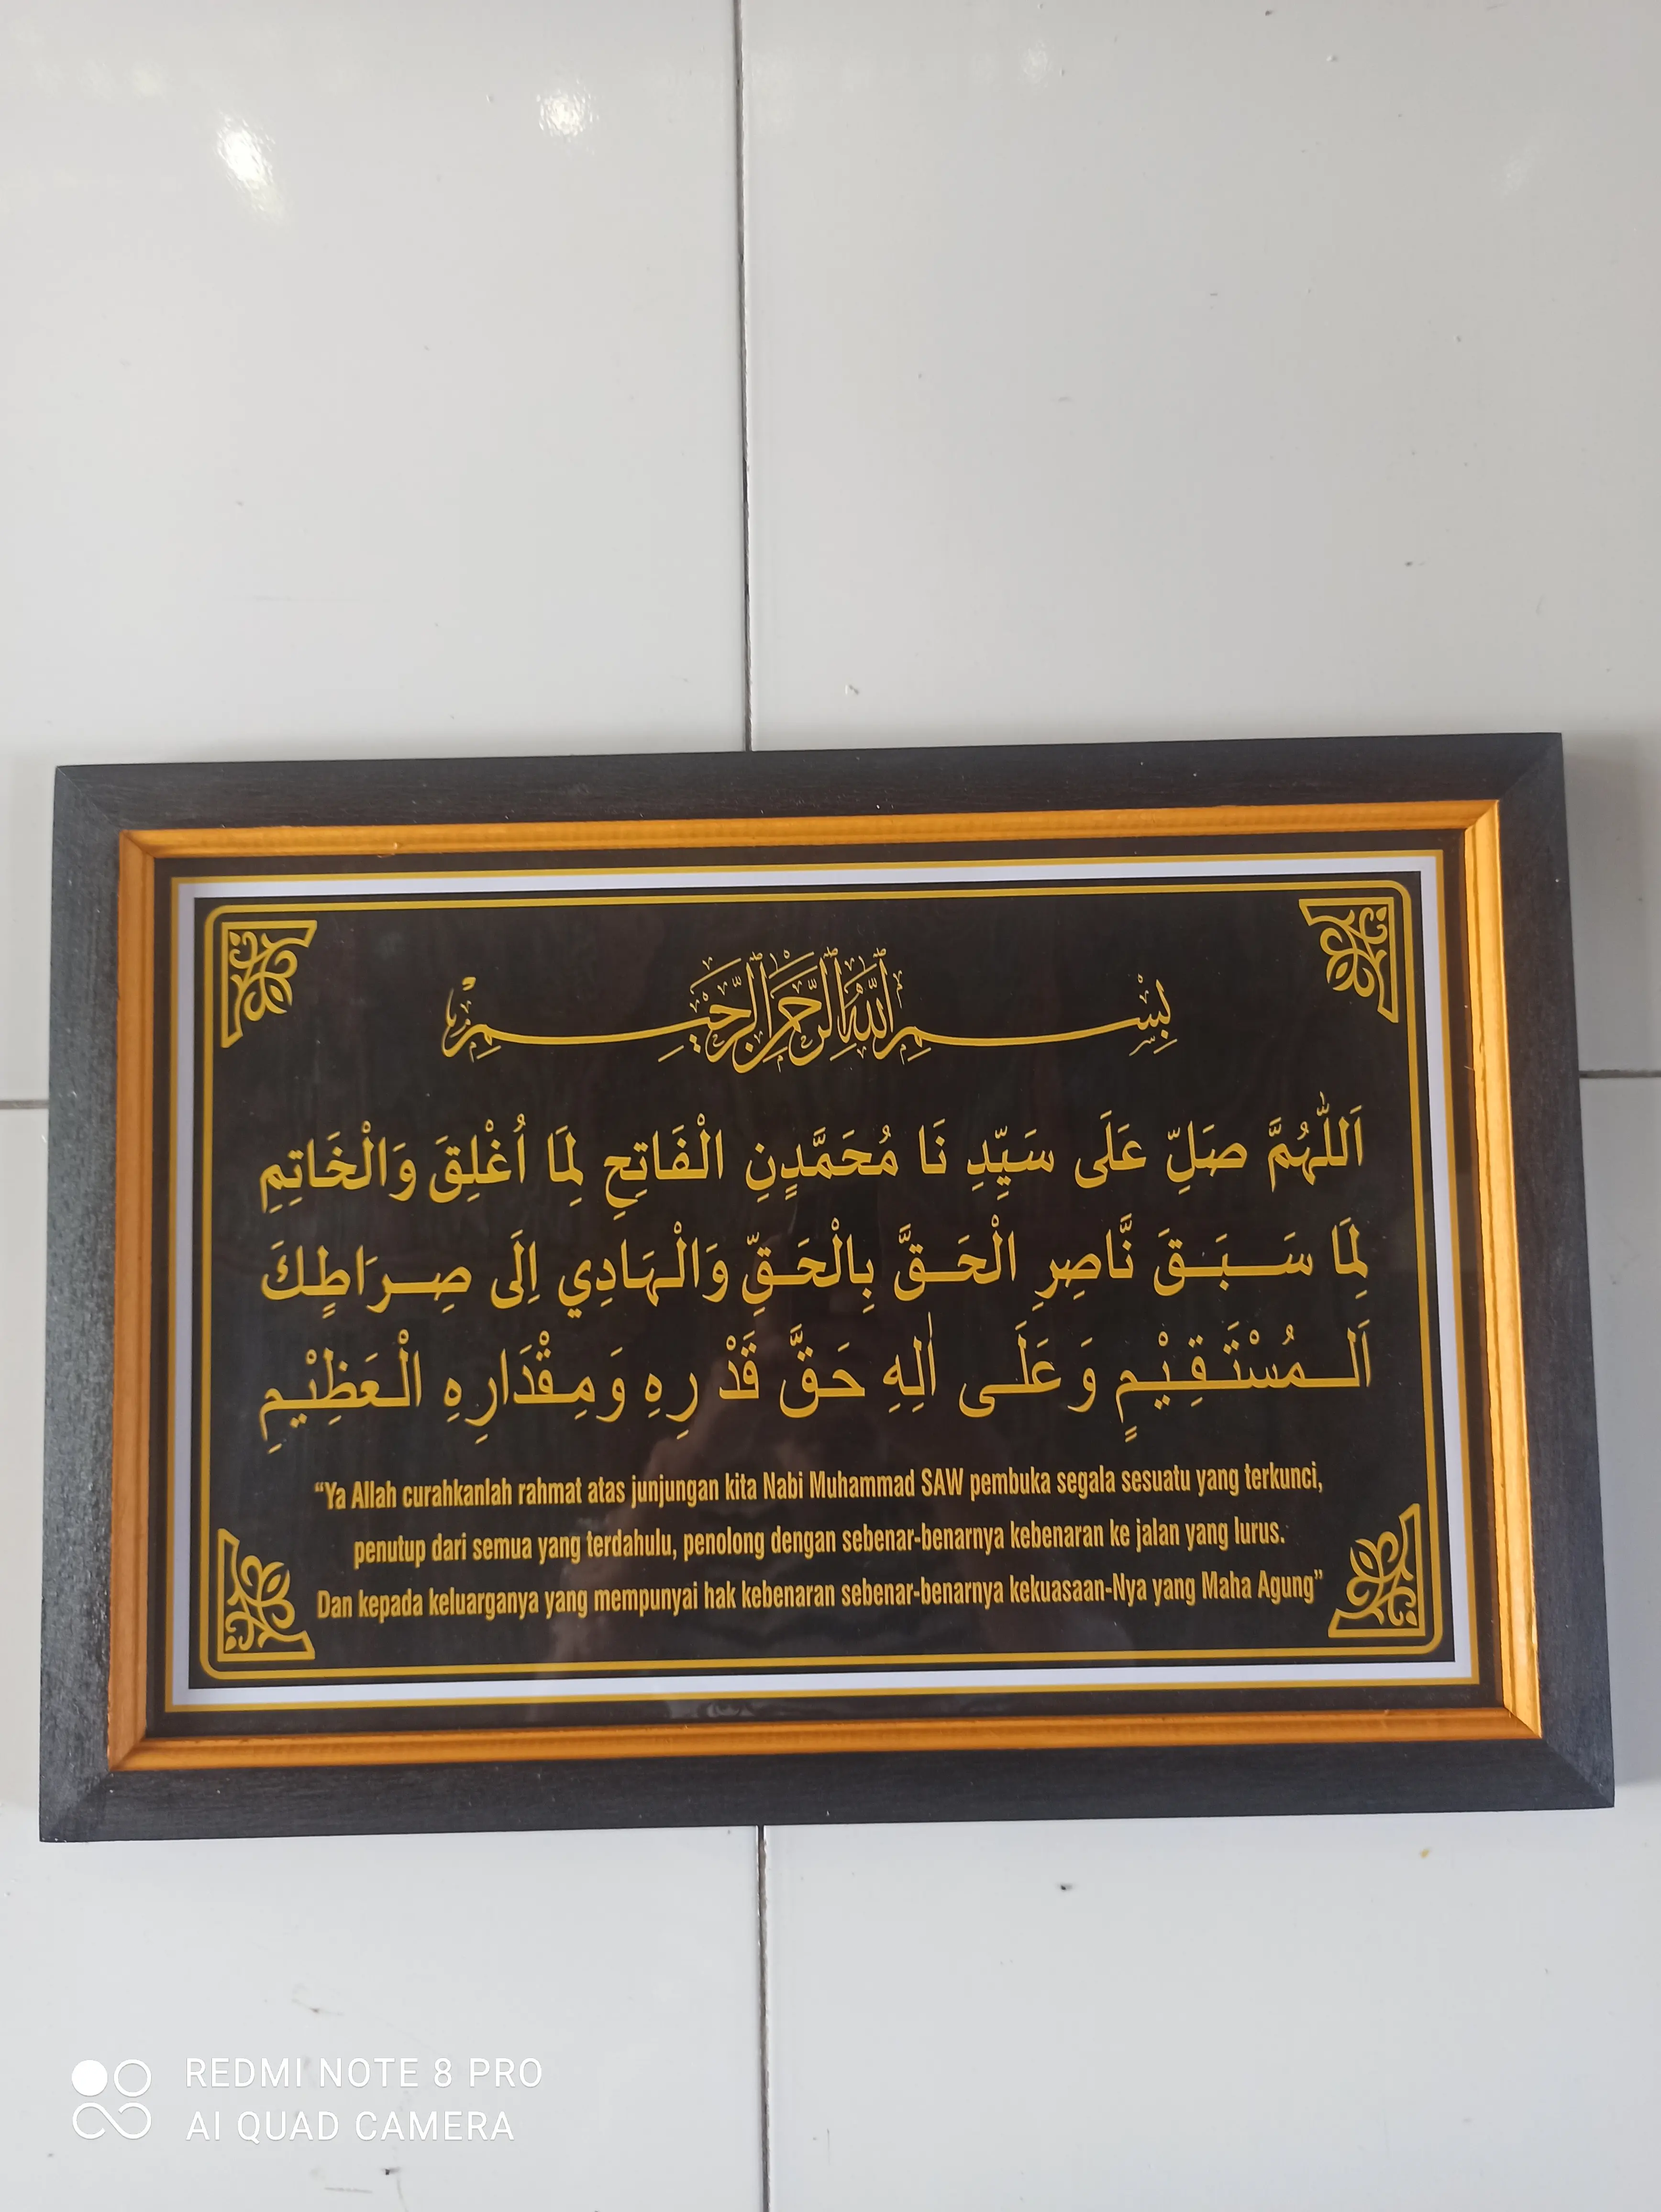 بِسْمِ اللَّهِ الرَّحْمَٰنِ الرَّحِيْمِ
اَللّٰهُمَّ صَلِّ عَلَى سَيِّدِ نَا مُحَمَّدٍنِ الْفَاتِحِ لِمَا اُغْلِقَ وَالْخَاتِمِ
لِمَا سَبَقَ نَّاصِرِ الْحَقَّ بِالْحَقِّ وَالْهَادِي اِلَى صِرَاطٍكَ
اَلْمُسْتَقِيْمٍ وَعَلَى اٰلِهِ حَقَّ قَدْ رِهِ وَمِقْدَارِهِ الْعَظِيْمِ
“Ya Allah curahkanlah rahmat atas junjungan kita Nabi Muhammad SAW pembuka segala sesuatu yang terkunci,
penutup dari semua yang terdahulu, penolong dengan sebenar-benarnya kebenaran ke jalan yang lurus.
Dan kepada keluarganya yang mempunyai hak kebenaran sebenar-benarnya kekuasaan-Nya yang Maha Agung”
REDMI NOTE 8 PRO
AI QUAD CAMERA